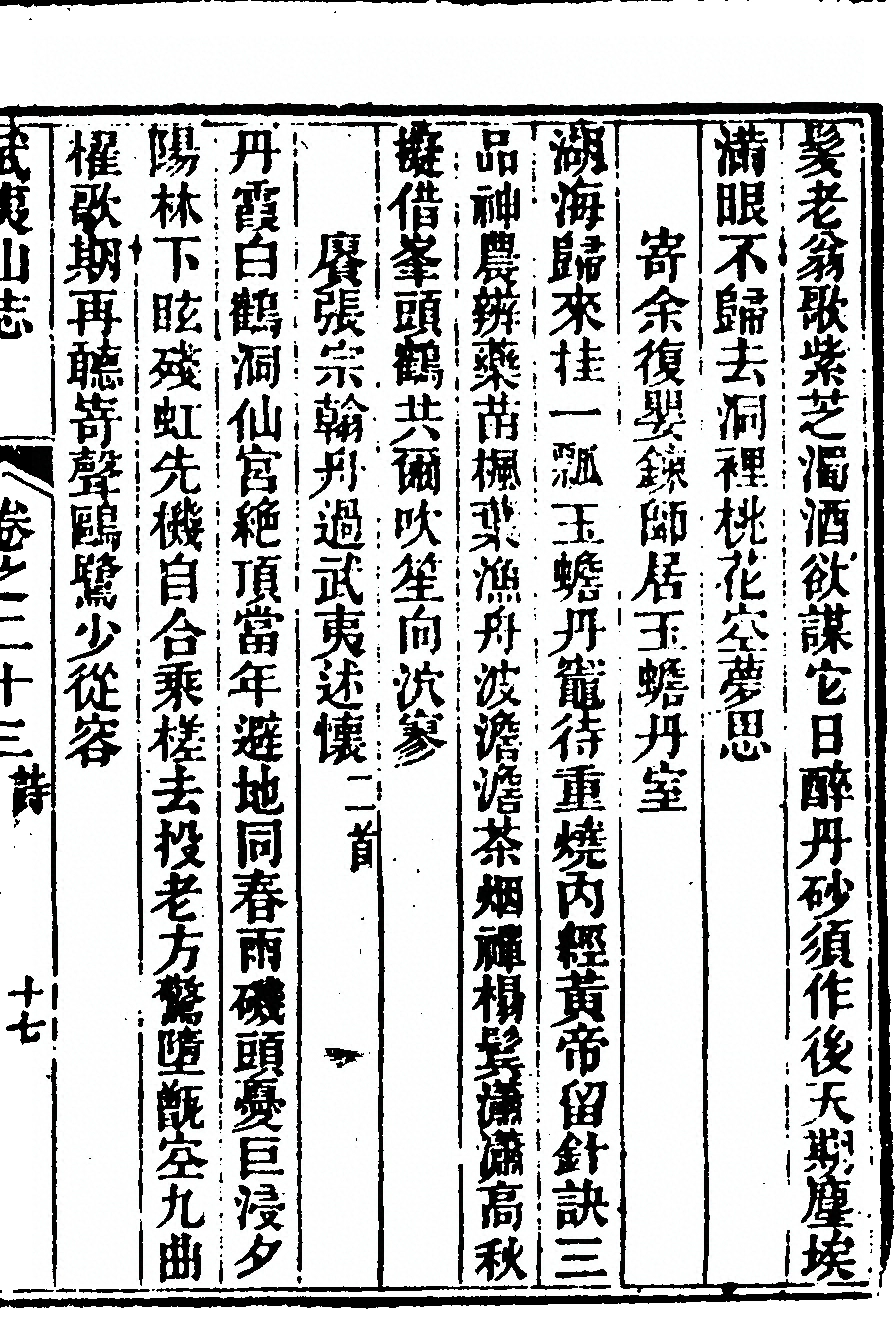 髮老翁歌紫芝濁酒欲謀它日醉丹砂須作後天期塵埃
滿眼不歸去洞裡桃花空夢思
寄余復嬰鍊師居玉蟾丹室
湖海歸來挂一瓢玉蟾丹竈待重燒內經黃帝留針訣三
品神農辨藥苗楓葉漁舟波澹澹茶烟禪榻鬂瀟瀟高秋
擬借峯頭鶴共爾吹笙向泬寥
賡張宗翰舟過武夷述懷二首
丹霞白鶴洞仙宮絶頂當年避地同春雨磯頭憂巨浸夕
陽林下眩殘虹先機自合乘槎去投老方驚墮甑空九曲
櫂歌期再聽嵜聲鷗鷺少從容
武夷山志
卷之二十三 詩
十七